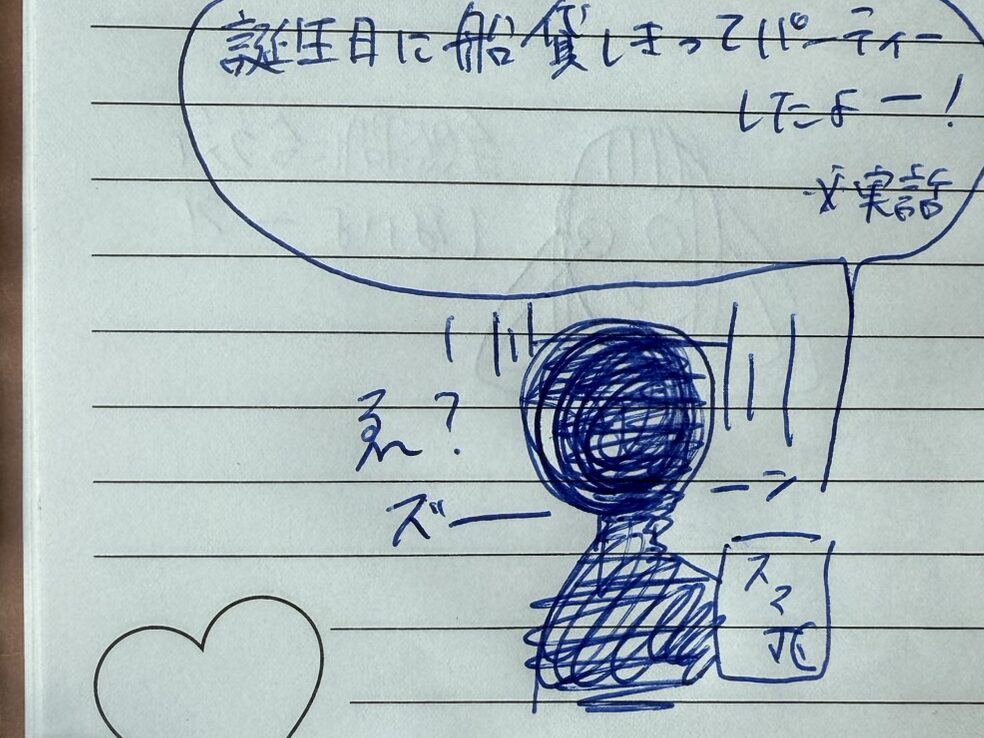 誕生日に船貸しきってパーティー
したよー！
※実話
ゑ？
ズーーン
スマホ